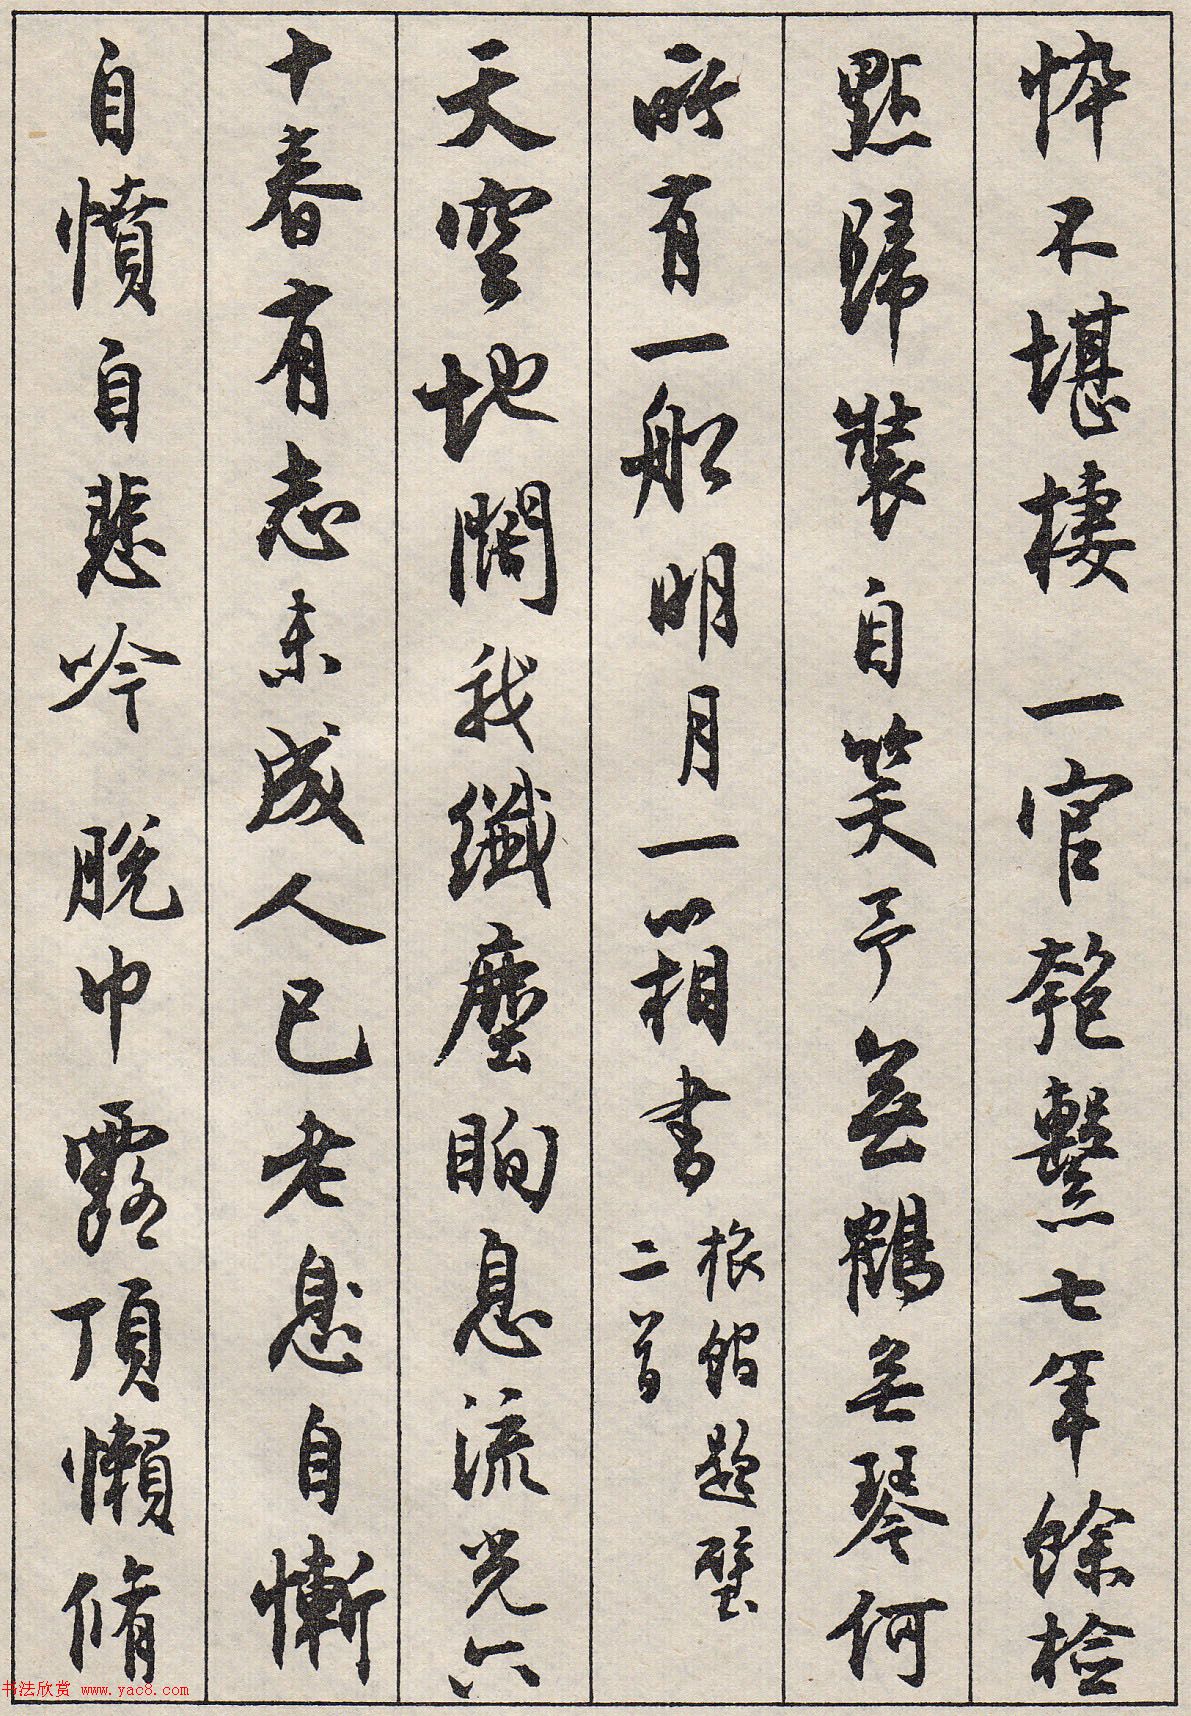 忰不堪棲一官匏繫七年餘檢
點歸裝自笑予無鶴無琴何
所有一船明月一箱書旅館題壁
二首
天空地闊我纖塵眴息流光六
十春有志未成人已老思自慚
自憤自悲吟脫巾露頂懶脩
书法欣赏 www.yac8.com